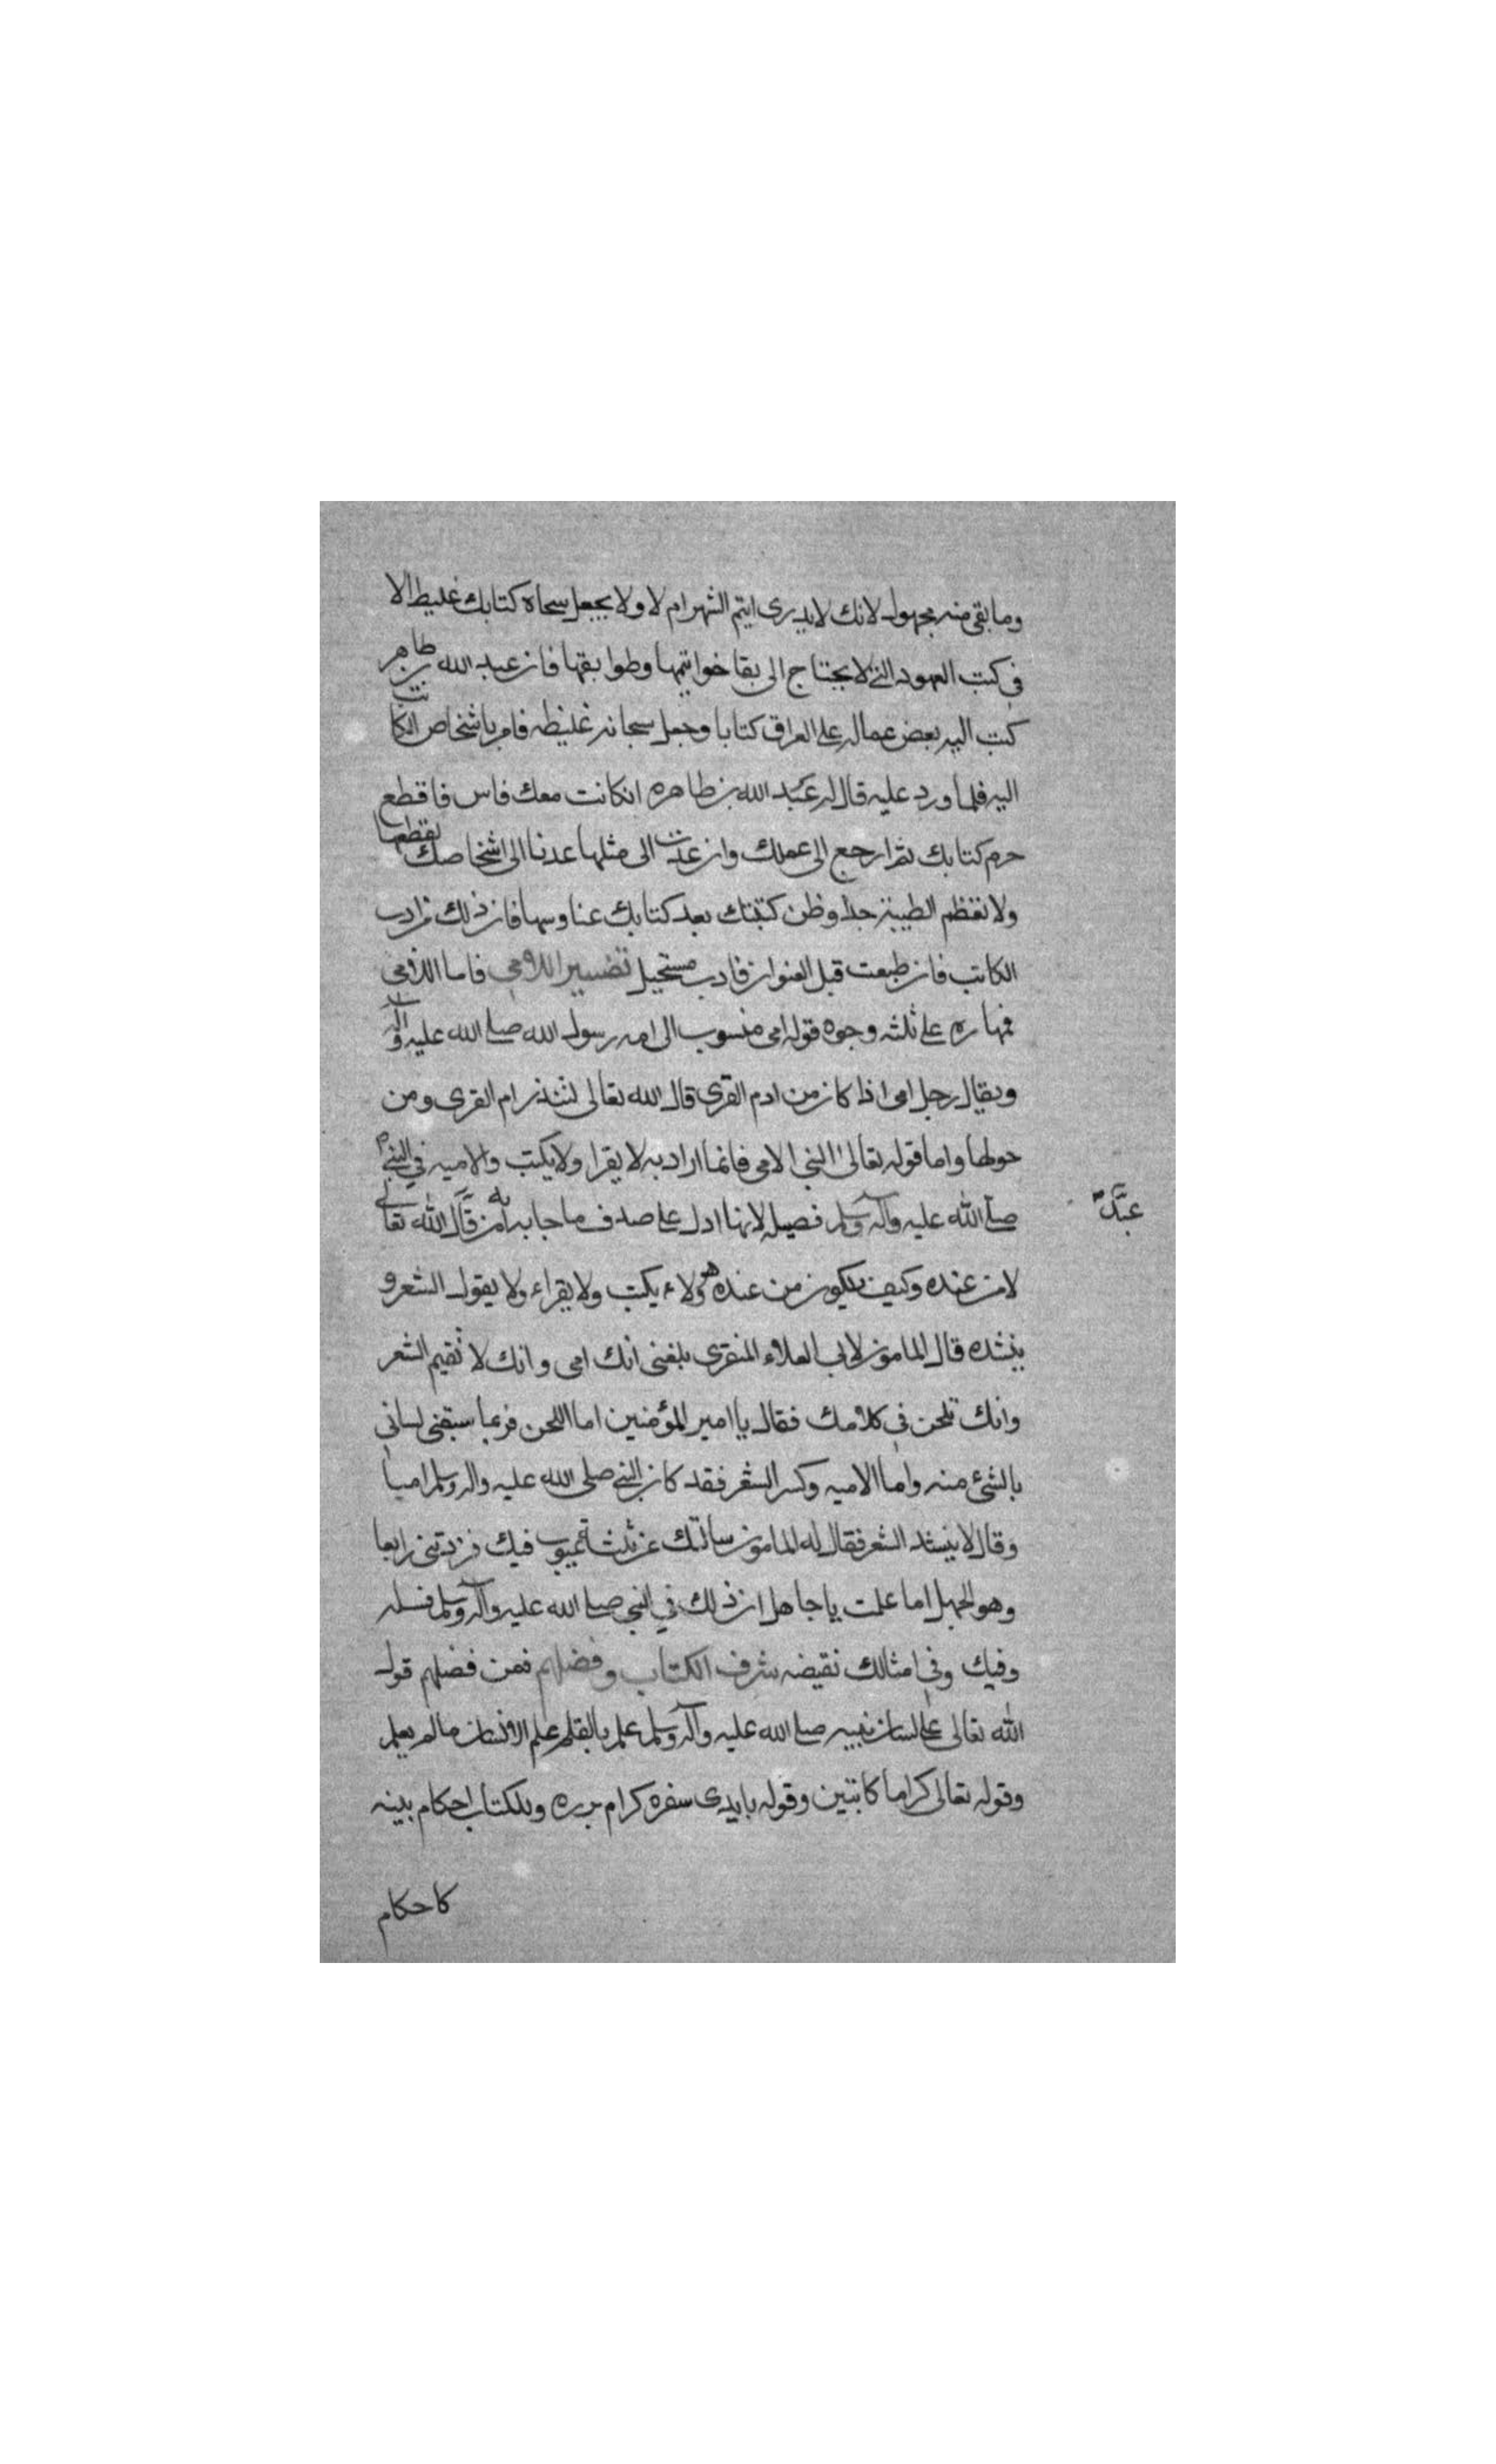 وما بقى منه مجهول لانك لا يدرى ايتم الشهر ام لا ولا يجعل سحاة كتابك غليظ الا
فى كتب العهود التى لا يحتاج الى بقا خواتيمها وطوابقها فان عبد الله بن طاهر
كتب اليه بعض عماله على العراق كتابا وجعل سحاته غليظه فامر باشخاص الكاتب
اليه فلما ورد عليه قال له عبد الله بن طاهره انكانت معك فاس فاقطع
حرم كتابك ثم ارجع الى عملك وان عدت الى مثلها عدنا الى اشخاصك لقطعها
ولا تعظم الطينة جدا وطن كتبتك بعد كتابك عناوسها فان ذلك من ادب
الكاتب فان طبعت قبل العنوان فادب مستحيل تفسير الامى فاما الامى
فمجازه على ثلثه وجوه قوله امى منسوب الى امه رسول الله صلى الله عليه واله
ويقال رجل امى اذا كان من ادم القرى قال الله تعالى لتنذر ام القرى ومن
حولها واما قوله تعالى النبى الامى فانما اراد به لا يقرا ولا يكتب والاميه في النبى
صلى الله عليه واله وسلم فضيله لانها ادل على صدف ما جا به امن قال الله تعالى
عبد
لا من عنده وكيف يكون من عنده هو ولاء يكتب ولا يقراء ولا يقول الشعر و
ينشده قال المامون لابى العلاء المنقرى بلغنى انك امى وانك لا تقيم الشعر
وانك تلحن فى كلامك فقال يا امير المؤمنين اما اللحن فربما سبقنى لسانى
بالشئ منه واما الاميه وكسر الشعر فقد كان النبى صلى الله عليه واله وسلم اميا
وقال لا ينشد الشعر فقال له المامون سالتك عن ثلثة عيوب فيك فزدتنى رابعا
وهو الجهل اما علمت يا جاهل ان ذلك في النبى صلى الله عليه واله وسلم فضيله
وفيك وفى امثالك نقيضه شرف الكتاب وفضلهم فمن فضلهم قول
الله تعالى على لسان نبيه صلى الله عليه واله وسلم علم بالقلم علم الانسان ما لم يعلم
وقوله تعالى كراما كاتبين وقوله بايدى سفره كرام برره وللكتاب احكام بينه
كاحكام